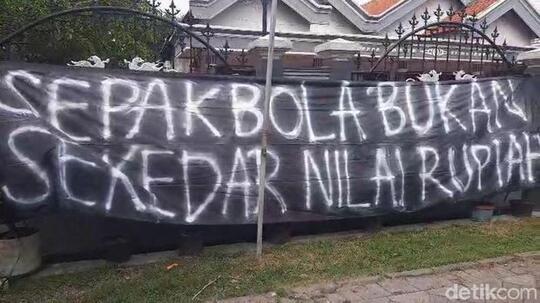 SEPAKBOLA BUKAN
SEKEDAR NILAI RUPIAH
detikcom